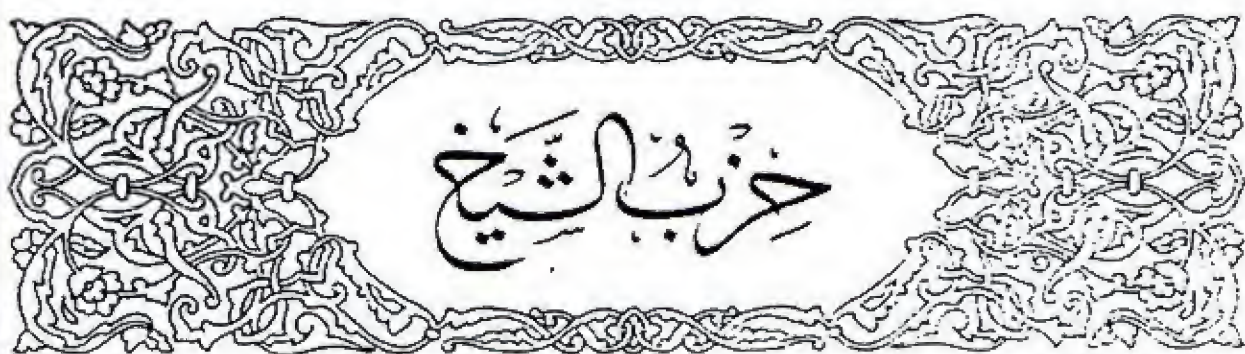 حِزْبُ الشَّيْخِ